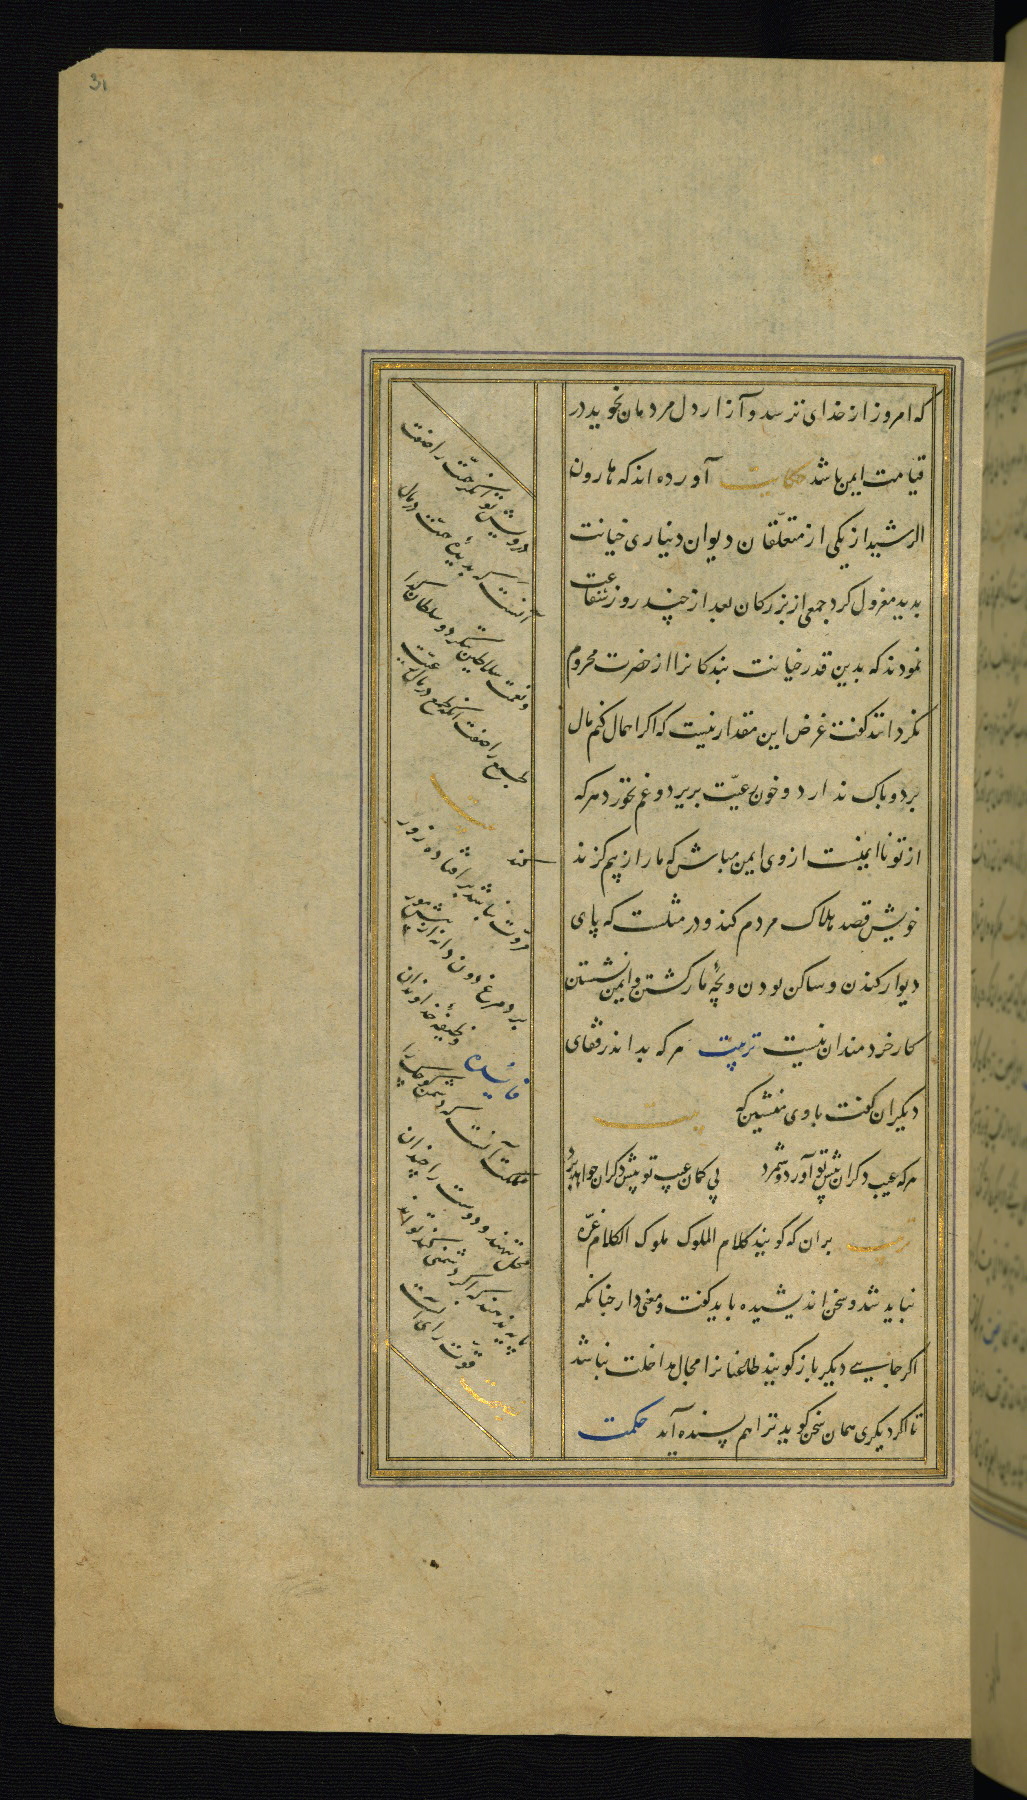 که امروز از خدای نترسد و آزار دل مردمان نجوید در
قیامت ایمن باشد حکایت آورده اند که هارون
الرشید از یکی از متعلّقان دیوان دیناری خیانت
بدید معزول کرد جمعی از بزرکان بعد از چند روز شفاعت
نمودند که بدین قدر خیانت بندکانرا از حضرت محروم
نکردانند کفت غرض این مقدار نیست که اکر اهمال کنم مال
برد و باک ندارد و خون رعیّت بریزد و غم نخورد هر که
از تو نا ایمنست از وی ایمن مباش که مار از بیم کزند
خویش قصد هلاک مردم کند و در مثلست که پای
دیوار کندن و ساکن بودن و بچهٔ مار کشتن و ایمن نشستن
کار خردمندان نیست تربیت هر که بد اندر قفای
دیکران کفت با وی منشین که بیت
هر که عیب دکران پیش تو آورد و شمرد بی کمان عیب تو پیش دکران خواهد برد
تربیت بران که کویند کلام الملوک ملوک الکلام غرّه
نباید شد و سخن اندیشیده باید کفت و معنی دار چنانکه
اکر جایی دیکر باز کویند طاعنانرا مجال مداخلت نباشد
تا اکر دیکری همان سخن کوید ترا هم پسنده آید حکمت
درویش توانکر همّت را صفت
آنست که بدیدهٔ همّت در مال
و نعمت سلاطین ننکرد و سلطان کدا
طبع را صفت آنکه طمع در مال رعیّت
کند
مروّت نباشد بر افتاده زور
برد مرغ دون دانه از پیش مور
فائده وظیفهٔ خداوندان
مملکت آنست که دشمن کوچک را
محل ننهند و دوست را چندان
پایه ندهند که اکر دشمنی کند تواند
قوّت
بیت
31